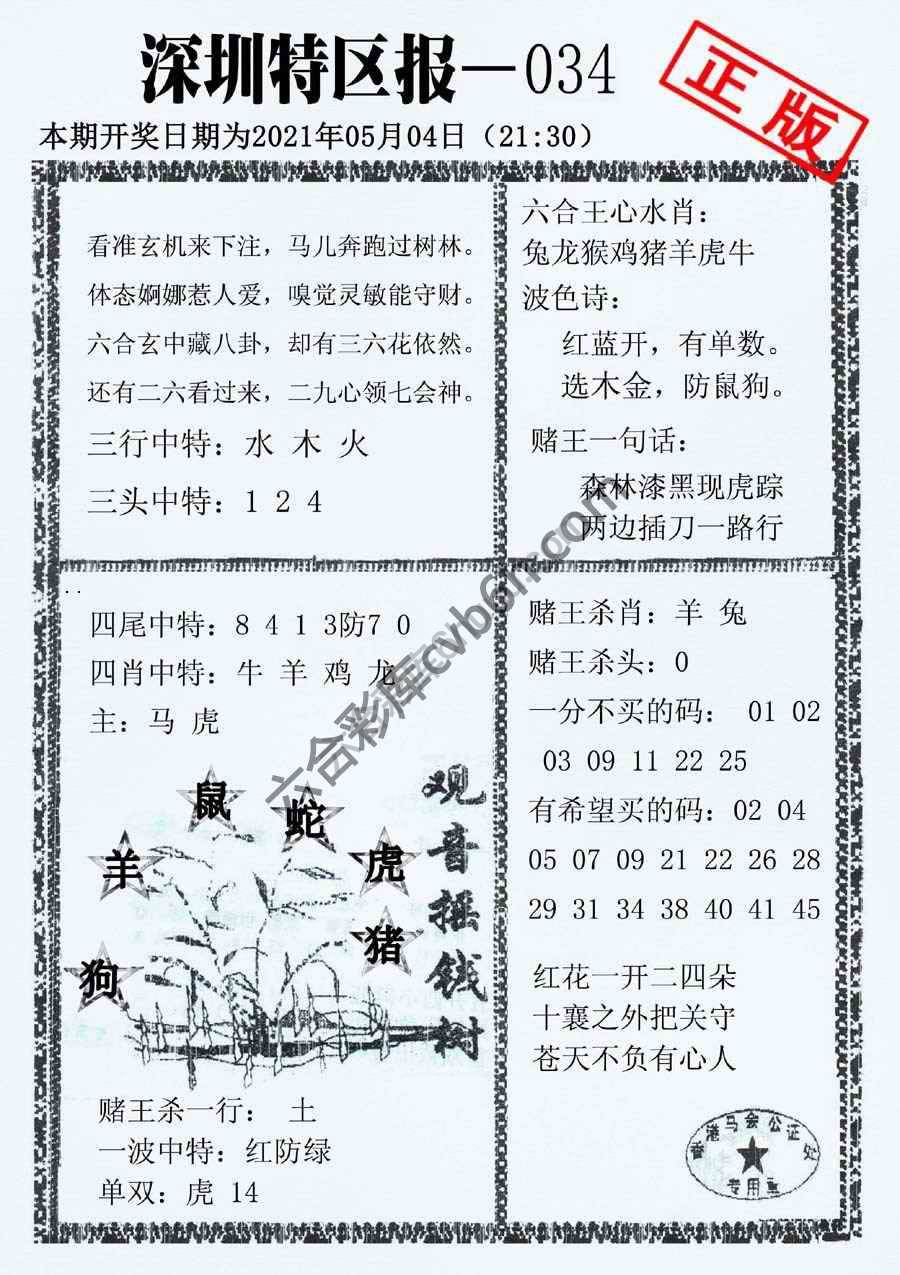 深圳特区报—034
正版
本期开奖日期为2021年05月04日（21:30）
看准玄机来下注，马儿奔跑过树林。
体态婀娜惹人爱，嗅觉灵敏能守财。
六合玄中藏八卦，却有三六花依然。
还有二六看过来，二九心领七会神。
三行中特：水 木 火
三头中特：1 2 4
六合王心水肖：
兔龙猴鸡猪羊虎牛
波色诗：
红蓝开，有单数。
选木金，防鼠狗。
赌王一句话：
森林漆黑现虎踪
两边插刀一路行
四尾中特：8 4 1 3防7 0
四肖中特：牛 羊 鸡 龙
主：马 虎
鼠
蛇
羊
虎
猪
狗
观音摇钱树
赌王杀一行： 土
一波中特：红防绿
单双：虎 14
赌王杀肖：羊 兔
赌王杀头：0
一分不买的码： 01 02
03 09 11 22 25
有希望买的码：02 04
05 07 09 21 22 26 28
29 31 34 38 40 41 45
红花一开二四朵
十襄之外把关守
苍天不负有心人
香港马会公证处
专用章
六合彩库cvb6h.com